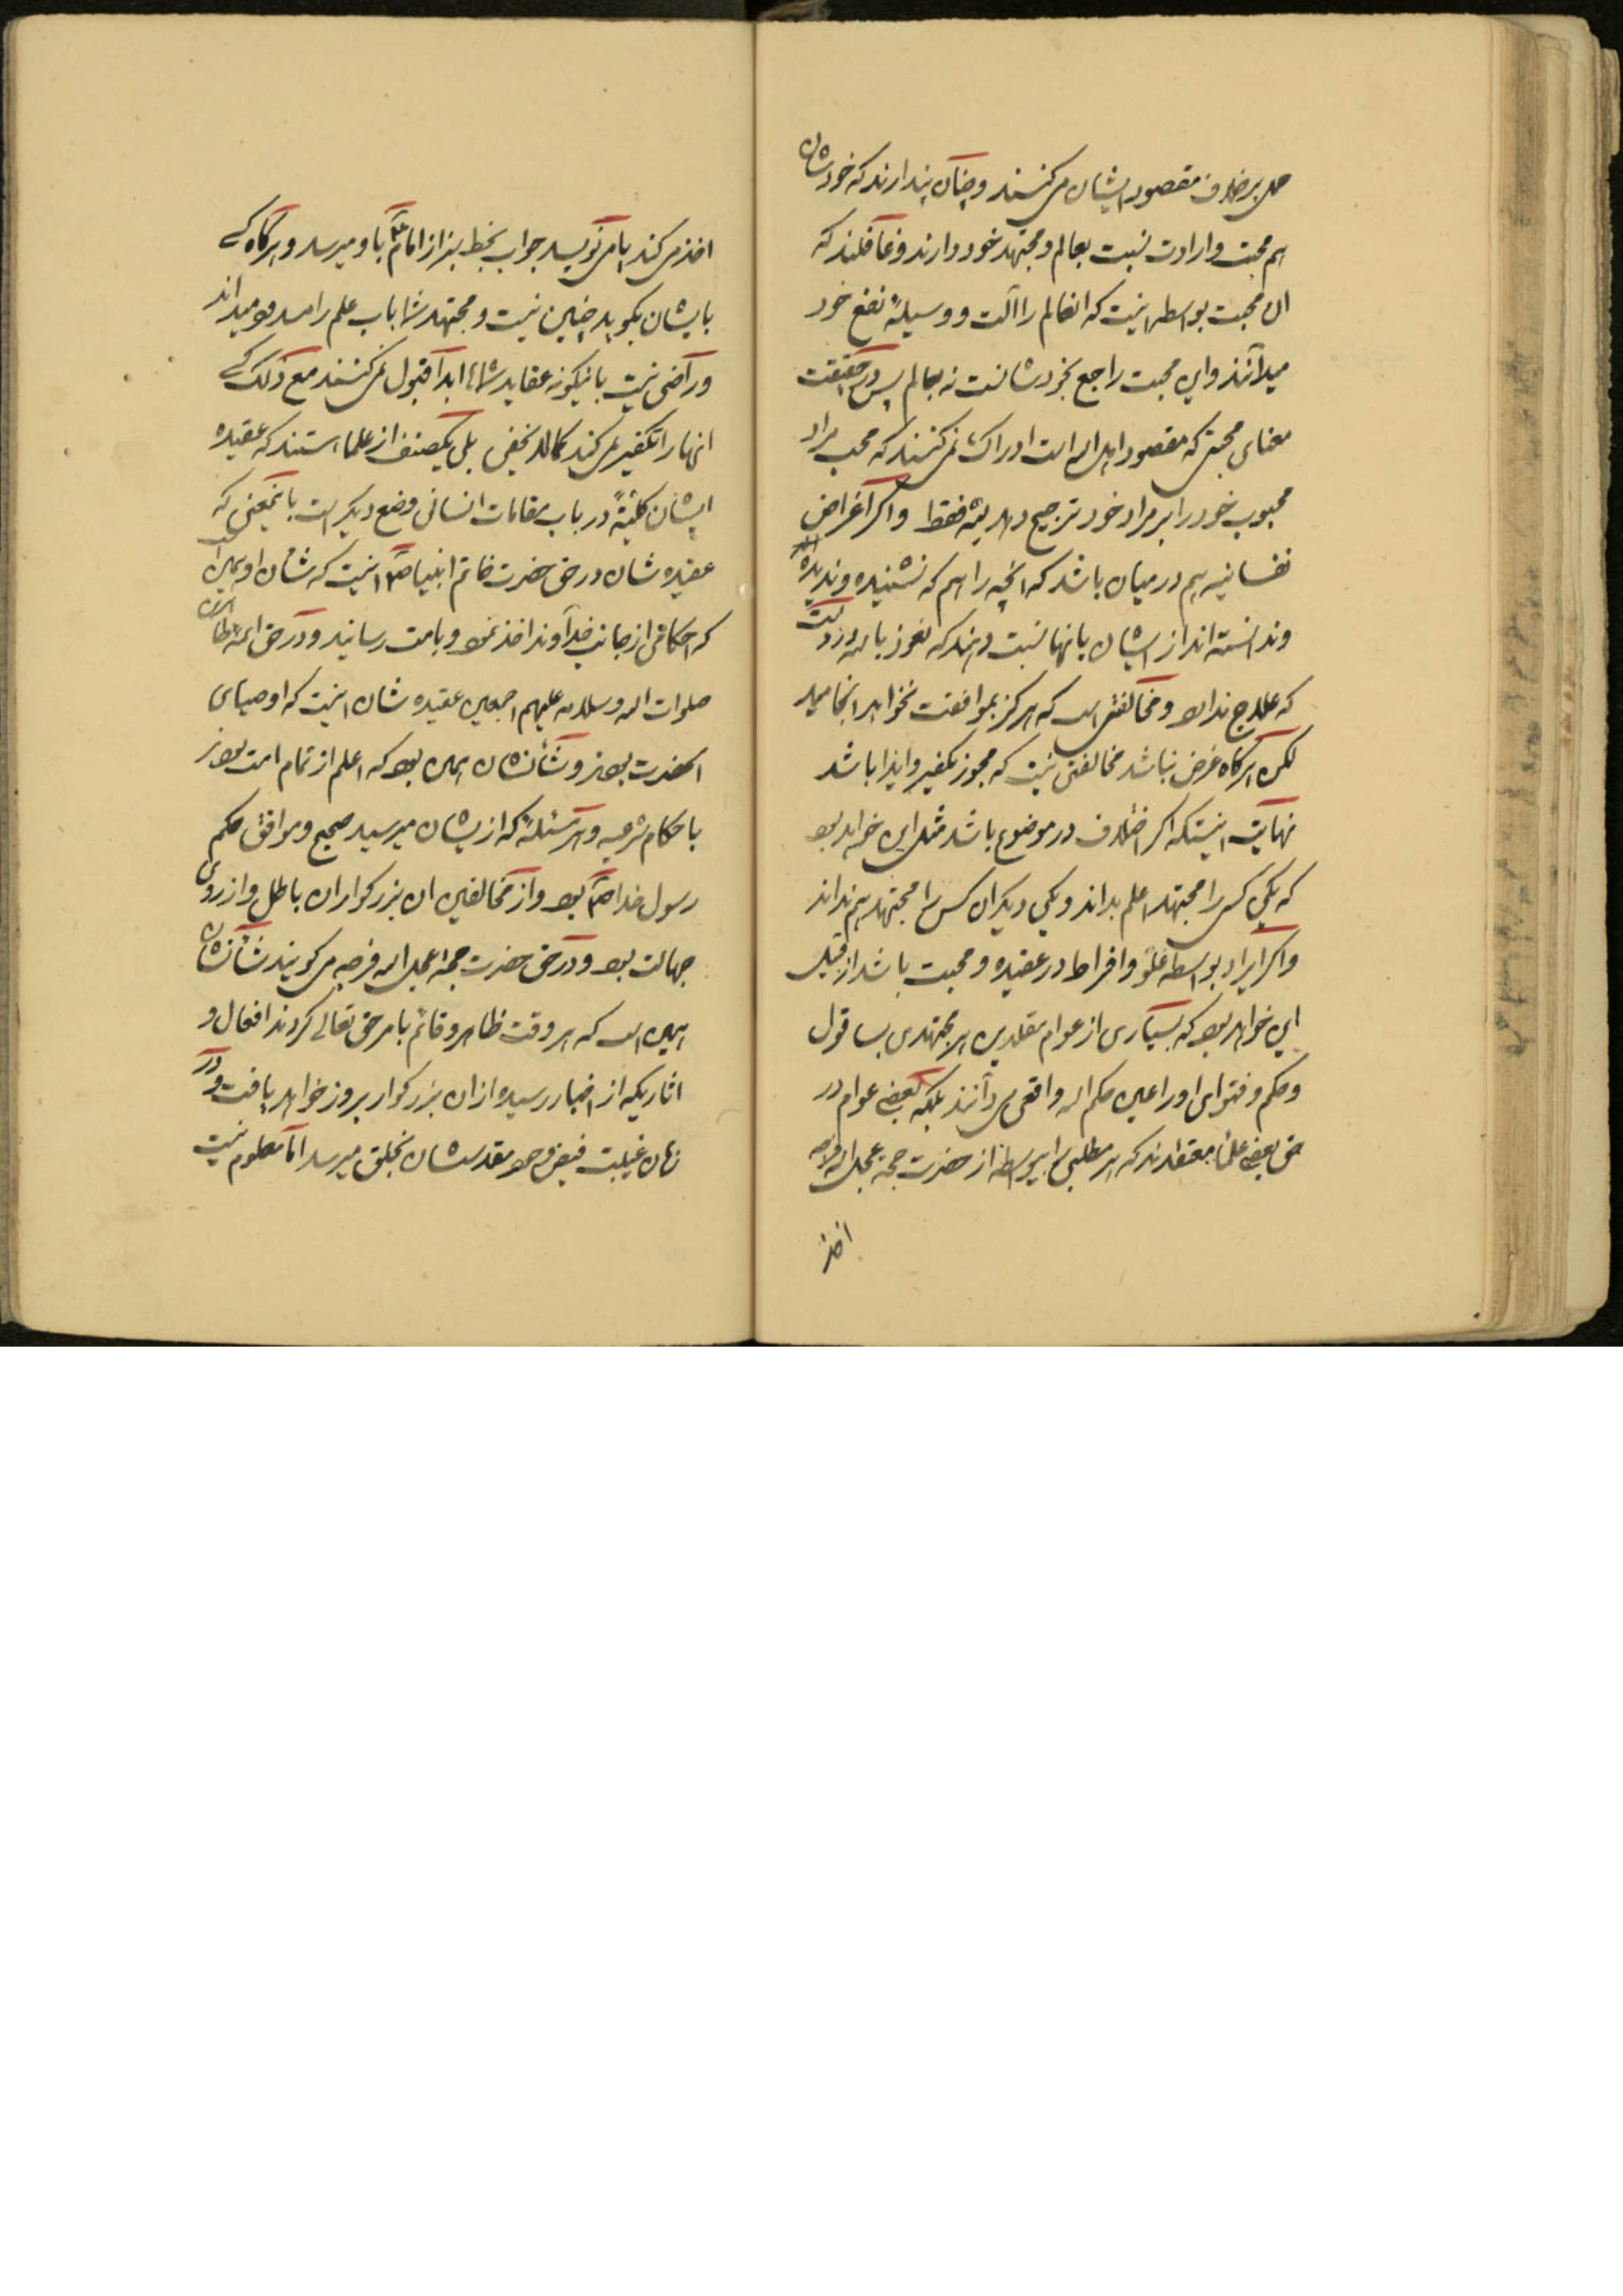 حمل برخلاف مقصود ایشان می کنند و چنان پندارند که خودشان
هم محبت و ارادت نسبت بعالم و مجتهد خود دارند و غافلند که
ان محبت بواسطه اینست که انعالم را آلت و وسیلهٔ نفع خود
میدانند و این محبت راجع بخودشانست نه بعالم پس در حقیقت
معنای محبتی که مقصود اهل اله است ادراک نمی کنند که محب مراد
محبوب خود را بر مراد خود ترجیح دهد یشه فقط و اگر اغراض
نفسانیه هم در میان باشد که انچه را هم که نشنیده و ندیده اند
و ندانسته اند از ایشان بانها نسبت دهند که نعوذ باله دردیست
که علاج ندارد و مخالفتی است که هرگز بموافقت نخواهد انجامید
لکن هرگاه غرض نباشد مخالفتی نیست که مجوز تکفیر و ایذا باشد
نهایت اینستکه اگر اختلاف در موضوع باشد مثل این خواهد بود
که یکی کسی را مجتهد اعلم بداند و یکی دیگر ان کس را مجتهد هم نداند
و اگر ایراد بواسطه غلو و افراط در عقیده و محبت باشد از قبیل
این خواهد بود که بسیاری از عوام مقلدین هر مجتهدی بسا قول
و حکم و فتوای او را عین حکم اله واقعی می دانند بلکه بعضی عوام در
حق بعضی علما معتقدند که هر مطلبی را بیواسطه از حضرت حجة عجل اله فرجه
اخذ
اخذ می کند یا می نویسد جواب بخط سبز از امام ع باو میرسد و هرگاه کسی
بایشان بگوید چنین نیست و مجتهد شما باب علم را مسدود میداند
و راضی نیست باینگونه عقاید شماها ابدا قبول نمی کنند مع ذلک کسی
انها را تکفیر نمی کند کما لا یخفی بلی یکصنف از علما هستند که عقیده
ایشان کلیةً در باب مقامات انسانی وضع دیگر است باینمعنی که
عقیده شان در حق حضرت خاتم انبیا ص اینست که شأن او همین بود
که احکامی از جانب خداوند اخذ نمود و بامت رسانید و در حق ائمه اطهار
صلوات اله و سلامه علیهم اجمعین عقیده شان اینست که اوصیای
انحضرت بودند و شأنشان همین بود که اعلم از تمام امت بودند
باحکام شرعیه و هر مسئلهٔ که از ایشان میرسید صحیح و موافق حکم
رسول خدا ص بود و از مخالفین ان بزرگواران باطل و از روی
جهالت بود و در حق حضرت حجة عجل اله فرجه می گویند شأنشان
همین است که هر وقت ظاهر و قائم بامر حق تعالی گردند افعال و
اثاریکه از اخبار رسیده از ان بزرگوار بروز خواهد یافت و در
زمان غیبت فیض وجود مقدسشان بخلق میرسد اما معلوم نیست